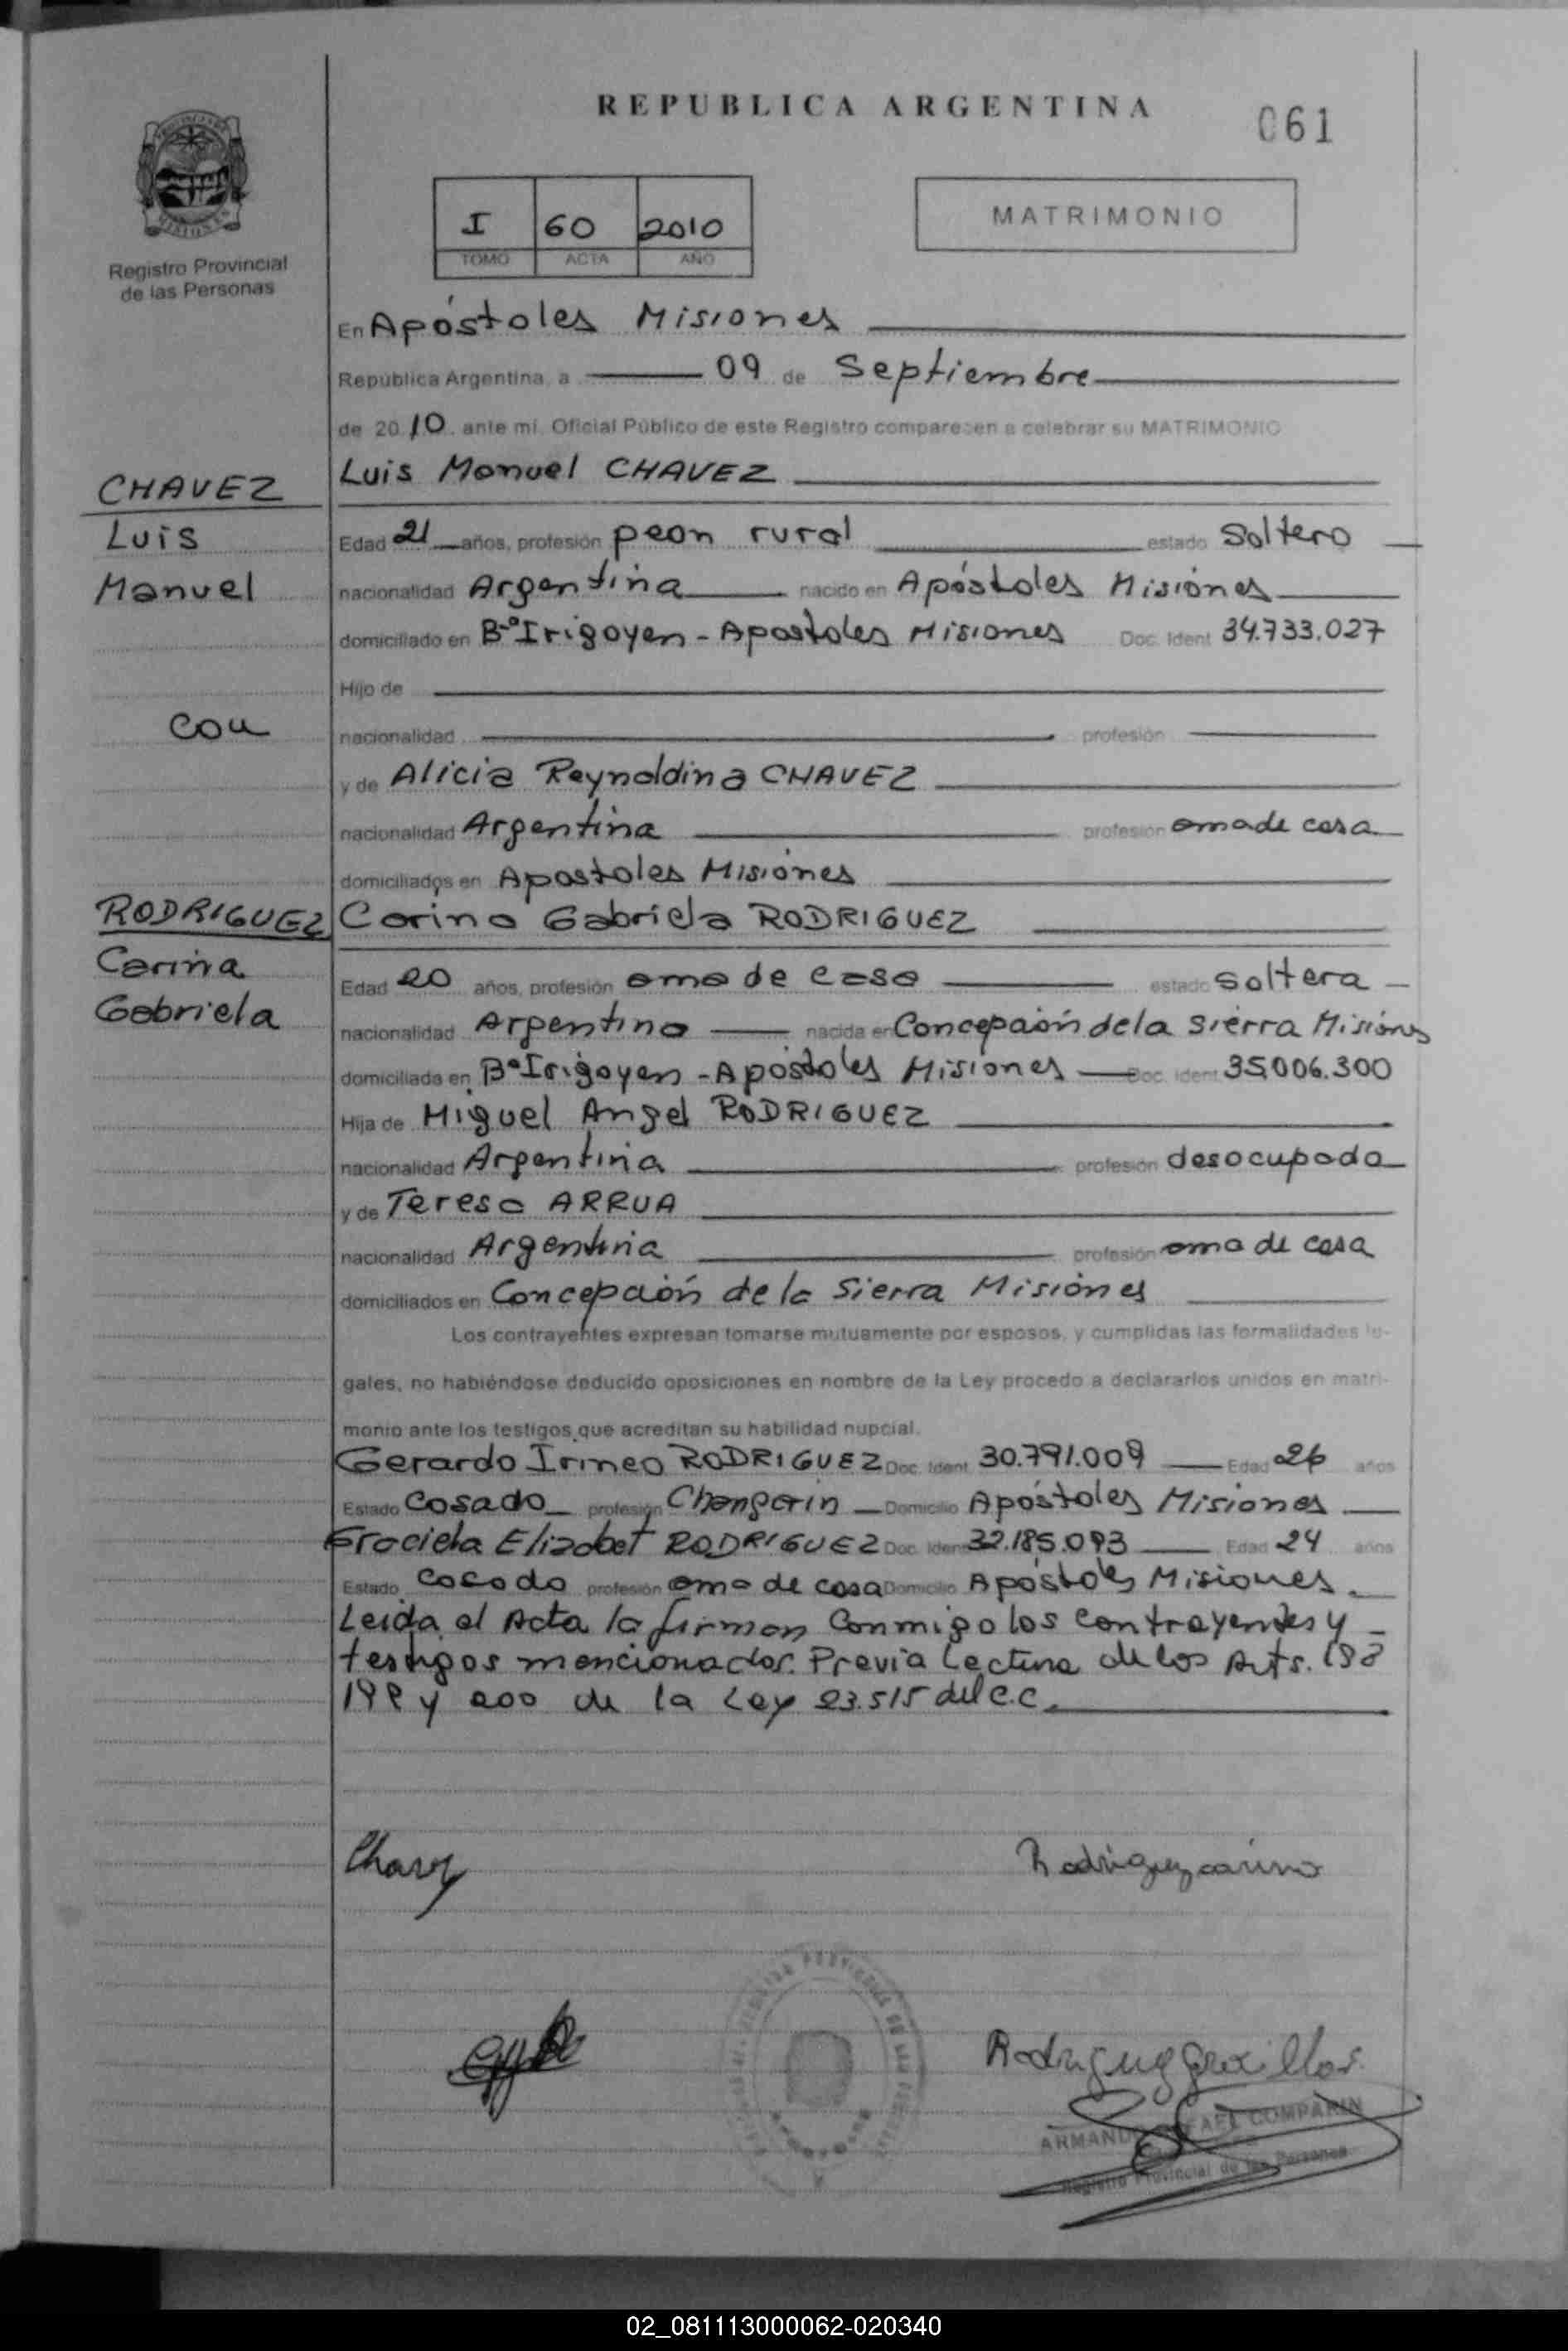 REPUBLICA ARGENTINA
061
I 60 2010
TOMO ACTA AÑO
MATRIMONIO
Registro Provincial
de las Personas
En Apóstoles Misiones
República Argentina, a 09 de Septiembre
de 2010. ante mí, Oficial Público de este Registro comparecen a celebrar su MATRIMONIO
CHAVEZ
Luis
Manuel
con
RODRIGUEZ
Carina
Gabriela
Luis Manuel CHAVEZ
Edad 21 años, profesión peon rural estado Soltero
nacionalidad Argentina nacido en Apóstoles Misiones
domiciliado en B.º Irigoyen - Apostoles Misiones Doc. Ident 34.733.027
Hijo de
nacionalidad profesión
y de Alicia Reynaldina CHAVEZ
nacionalidad Argentina profesión ama de casa
domiciliados en Apostoles Misiones
Carina Gabriela RODRIGUEZ
Edad 20 años, profesión ama de casa estado soltera
nacionalidad Argentina nacida en Concepción de la Sierra Misiones
domiciliada en Bº Irigoyen - Apóstoles Misiones Doc. Ident 35.006.300
Hija de Miguel Angel RODRIGUEZ
nacionalidad Argentina profesión desocupado
y de Teresa ARRUA
nacionalidad Argentina profesión ama de casa
domiciliados en Concepción de la Sierra Misiones
Los contrayentes expresan tomarse mutuamente por esposos, y cumplidas las formalidades le-
gales, no habiéndose deducido oposiciones en nombre de la Ley procedo a declararlos unidos en matri-
monio ante los testigos que acreditan su habilidad nupcial.
Gerardo Irineo RODRIGUEZ Doc. Ident 30.791.009 Edad 26 años
Estado Casado profesión Changarin Domicilio Apóstoles Misiones
Graciela Elizabet RODRIGUEZ Doc. Ident 32.185.093 Edad 24 años
Estado profesión ama de casa Domicilio Apóstoles Misiones
Leida el Acta la firman conmigo los contrayentes y
testigos mencionados. Previa lectura de los Arts. 198
199 y 200 de la Ley 23.515 del C.C.
Chavez
Rodriguez carina
Rodriguez
ARMANDO RAFAEL COMPARIN
Registro Provincial de las Personas
02_081113000062-020340